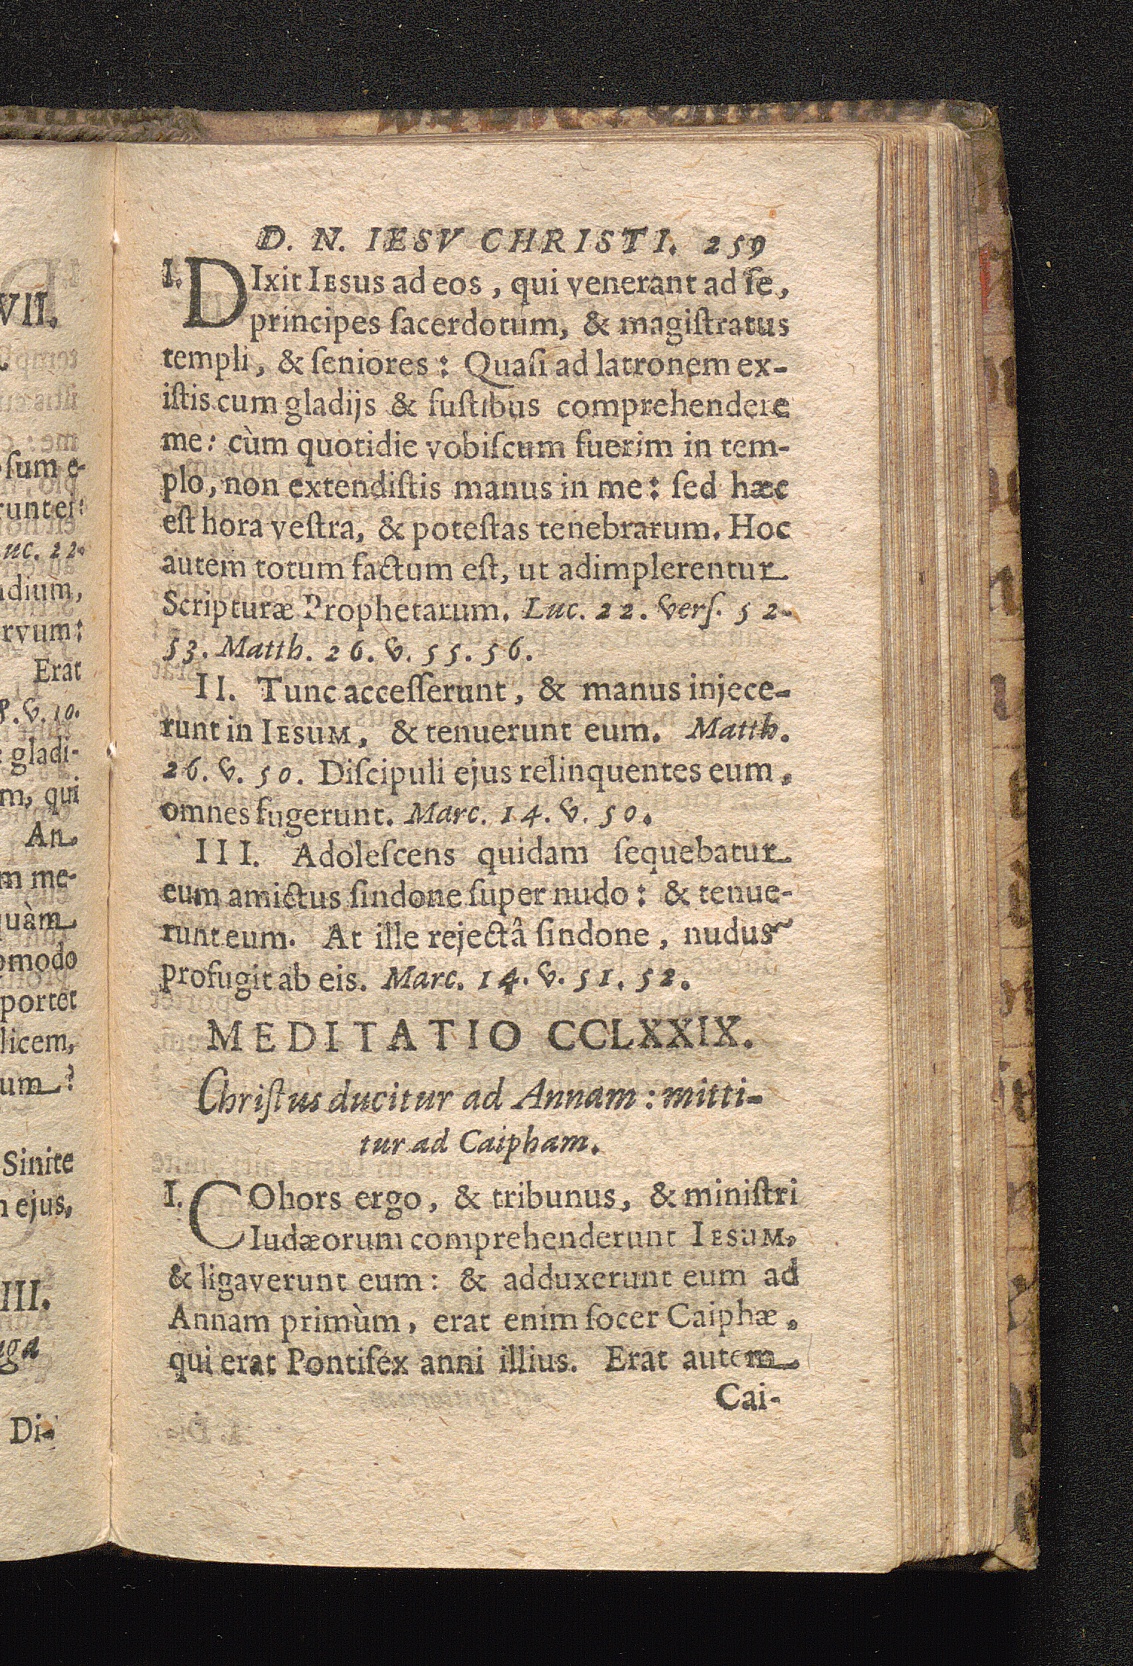 VII.
sum e-
runt ei:
uc. 22.
adium,
rvum:
Erat
8. v. 10.
gladi-
m, qui
An-
m me-
quàm
omodo
portet
licem,
um?
Sinite
ejus,
III.
uga
Di-
D. N. IESV CHRISTI. 259
I. DIxit IESUS ad eos, qui venerant ad ſe,
principes ſacerdotum, & magiſtratus
templi, & ſeniores: Quaſi ad latronem ex-
iſtis cum gladijs & fuſtibus comprehendere
me: cùm quotidie vobiſcum fuerim in tem-
plo, non extendiſtis manus in me: ſed hæc
eſt hora veſtra, & poteſtas tenebrarum. Hoc
autem totum factum eſt, ut adimplerentur
Scripturæ Prophetarum. Luc. 22. verſ. 52.
53. Matth. 26. v. 55. 56.
II. Tunc acceſſerunt, & manus injece-
runt in IESUM, & tenuerunt eum. Matth.
26. v. 50. Diſcipuli ejus relinquentes eum,
omnes fugerunt. Marc. 14. v. 50.
III. Adoleſcens quidam ſequebatur
eum amictus ſindone ſuper nudo: & tenue-
runt eum. At ille rejectâ ſindone, nudus
profugit ab eis. Marc. 14. v. 51. 52.
MEDITATIO CCLXXIX.
Chriſtus ducitur ad Annam: mitti-
tur ad Caipham.
I. COhors ergo, & tribunus, & miniſtri
Iudæorum comprehenderunt IESUM,
& ligaverunt eum: & adduxerunt eum ad
Annam primùm, erat enim ſocer Caiphæ,
qui erat Pontifex anni illius. Erat autem
Cai-